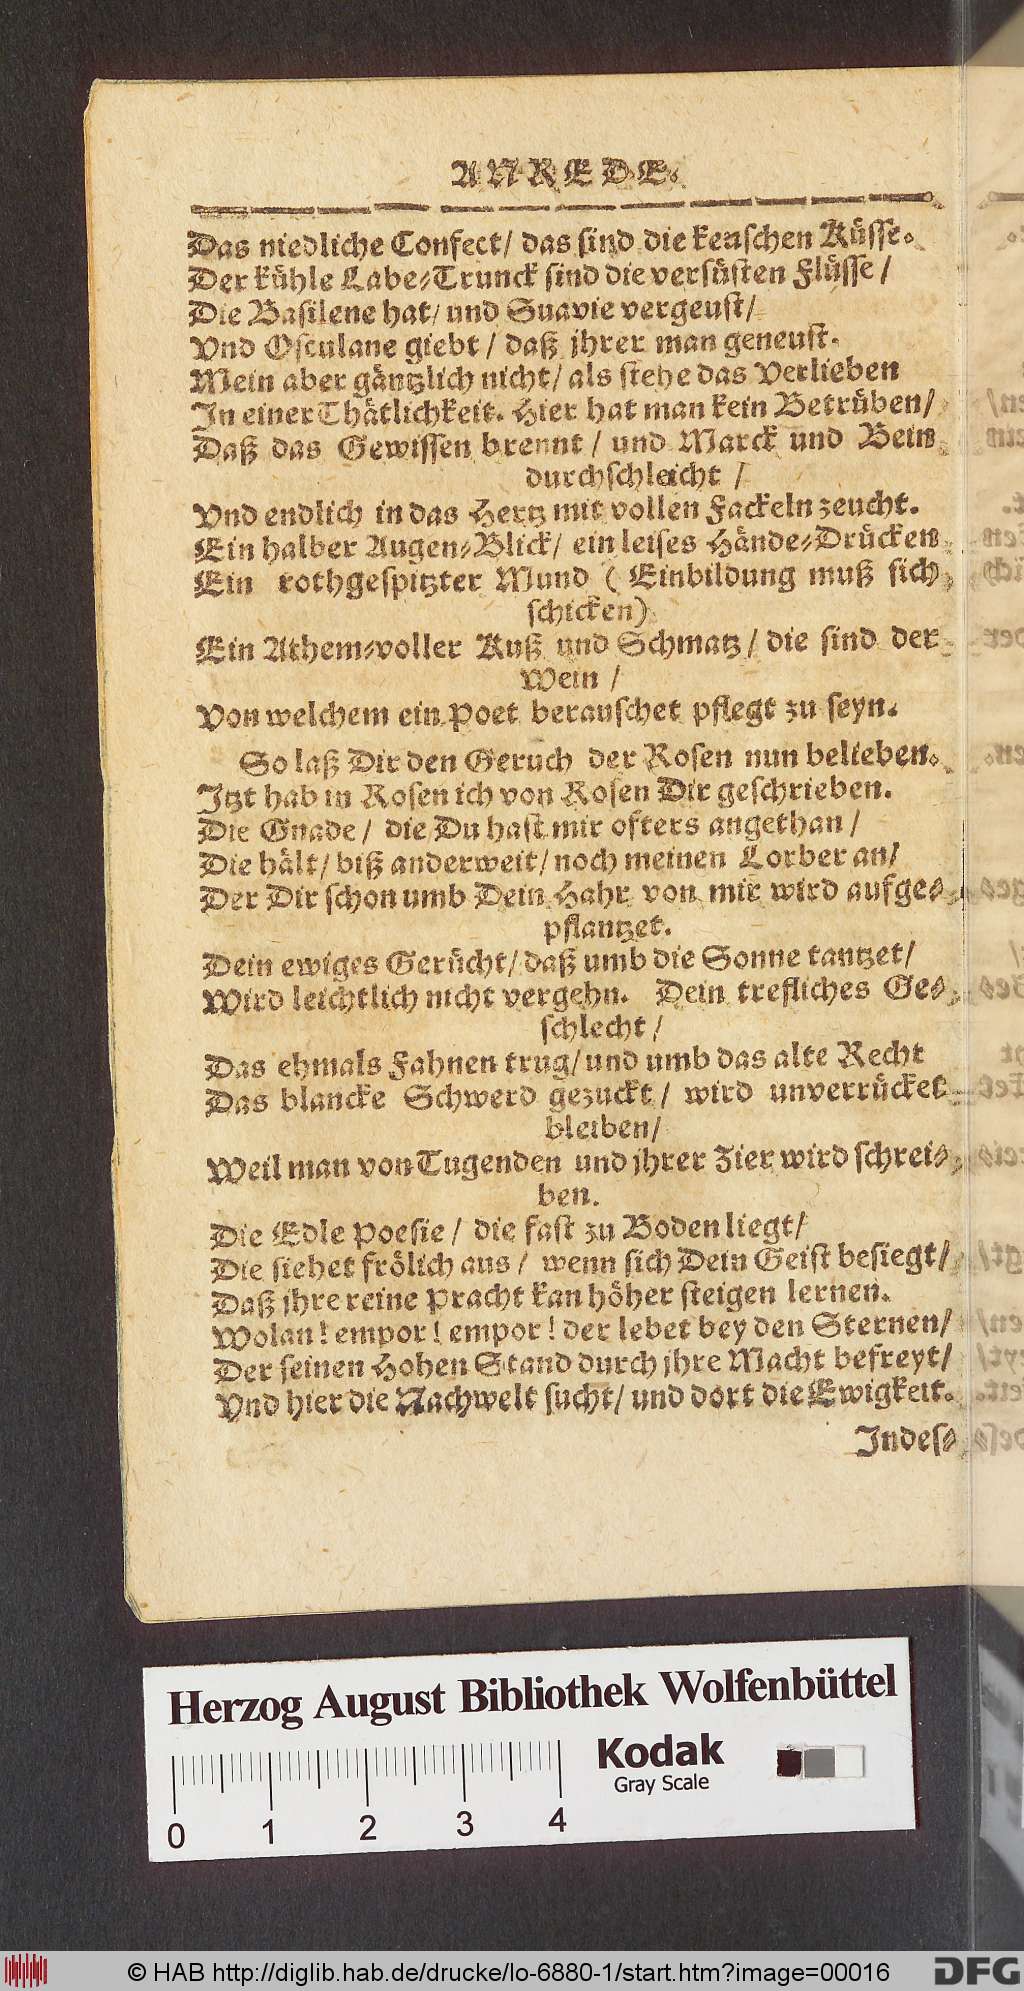 ANREDE.
Das niedliche Confect/ das sind die keuschen Küsse.
Der kühle Labe-Trunck sind die versüsten Flüsse/
Die Basilene hat/ und Suavie vergeust/
Vnd Osculane giebt/ daß jhrer man geneust.
Mein aber gäntzlich nicht/ als stehe das Verlieben
In einer Thätlichkeit. Hier hat man kein Betrüben/
Daß das Gewissen brennt/ und Marck und Bein
durchschleicht/
Vnd endlich in das Hertz mit vollen Fackeln zeucht.
Ein halber Augen-Blick/ ein leises Hände-Drücken
Ein rothgespitzter Mund (Einbildung muß sich
schicken)
Ein Athem-voller Kuß und Schmatz/ die sind der
Wein/
Von welchem ein Poet berauschet pflegt zu seyn.
So laß Dir den Geruch der Rosen nun belieben.
Jtzt hab in Rosen ich von Rosen Dir geschrieben.
Die Gnade/ die Du hast mir ofters angethan/
Die hält/ biß anderweit/ noch meinen Lorber an/
Der Dir schon umb Dein Hahr von mir wird aufge-
pflantzet.
Dein ewiges Gerücht/ daß umb die Sonne tantzet/
Wird leichtlich nicht vergehn. Dein trefliches Ge-
schlecht/
Das ehmals Fahnen trug/ und umb das alte Recht
Das blancke Schwerd gezuckt/ wird unverrücket
bleiben/
Weil man von Tugenden und jhrer Zier wird schrei-
ben.
Die Edle Poesie/ die fast zu Boden liegt/
Die siehet frölich aus/ wenn sich Dein Geist besiegt/
Daß jhre reine Pracht kan höher steigen lernen.
Wolan! empor! empor! der lebet bey den Sternen/
Der seinen Hohen Stand durch jhre Macht befreyt/
Vnd hier die Nachwelt sucht/ und dort die Ewigkeit.
Indes-
Herzog August Bibliothek Wolfenbüttel
Kodak
Gray Scale
0 1 2 3 4
© HAB http://diglib.hab.de/drucke/lo-6880-1/start.htm?image=00016
DFG